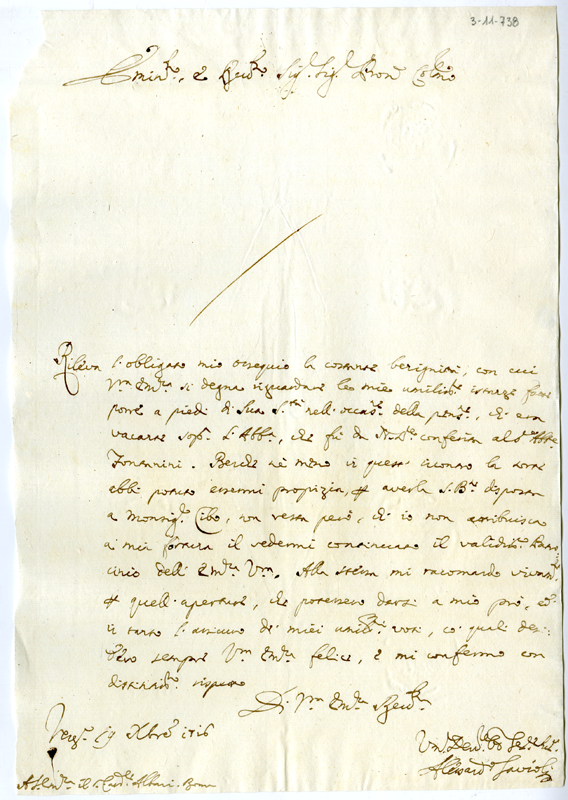 3-11-738
Emin.mo, e Rev.mo Sig.r Sig.r Pron Col.mo
Rileva l'obligato mio ossequio la costante benignità, con cui
V.ra Em.za si degna riguardare le mie umiliss.e istanze
porre a piedi di Sua S.tà nell'occas.e della pens.e, che era
vacata sop.a l'Abb.a, che fù da N. S.re conferita al S.r Abbe
Fontanini. Benche nè meno in questo incontro la sorte
ebbi potuto essermi propizia, averla S. B.ne disposta
a Monsig.r Cibo, non resta però, che io non attribuisca
a mia fortuna il vedermi continuato il validiss.o
cinio dell' Em.za V.ra. Alla stessa mi racomando vivam.e
quell'aperture, che potessero darsi a mio prò, ed
in tanto l'assicuro de miei umiliss.i voti, co' quali
sempre V.ra Em.za felice, e mi confermo con
distintiss.o rispetto
Di V.ra Em.za Rev.ma
19 Xbre 1716
Um.o Dev.o Ob. Ser.
Alessand.o Savioli
A S. Em.za il S. Card. Albani. Roma